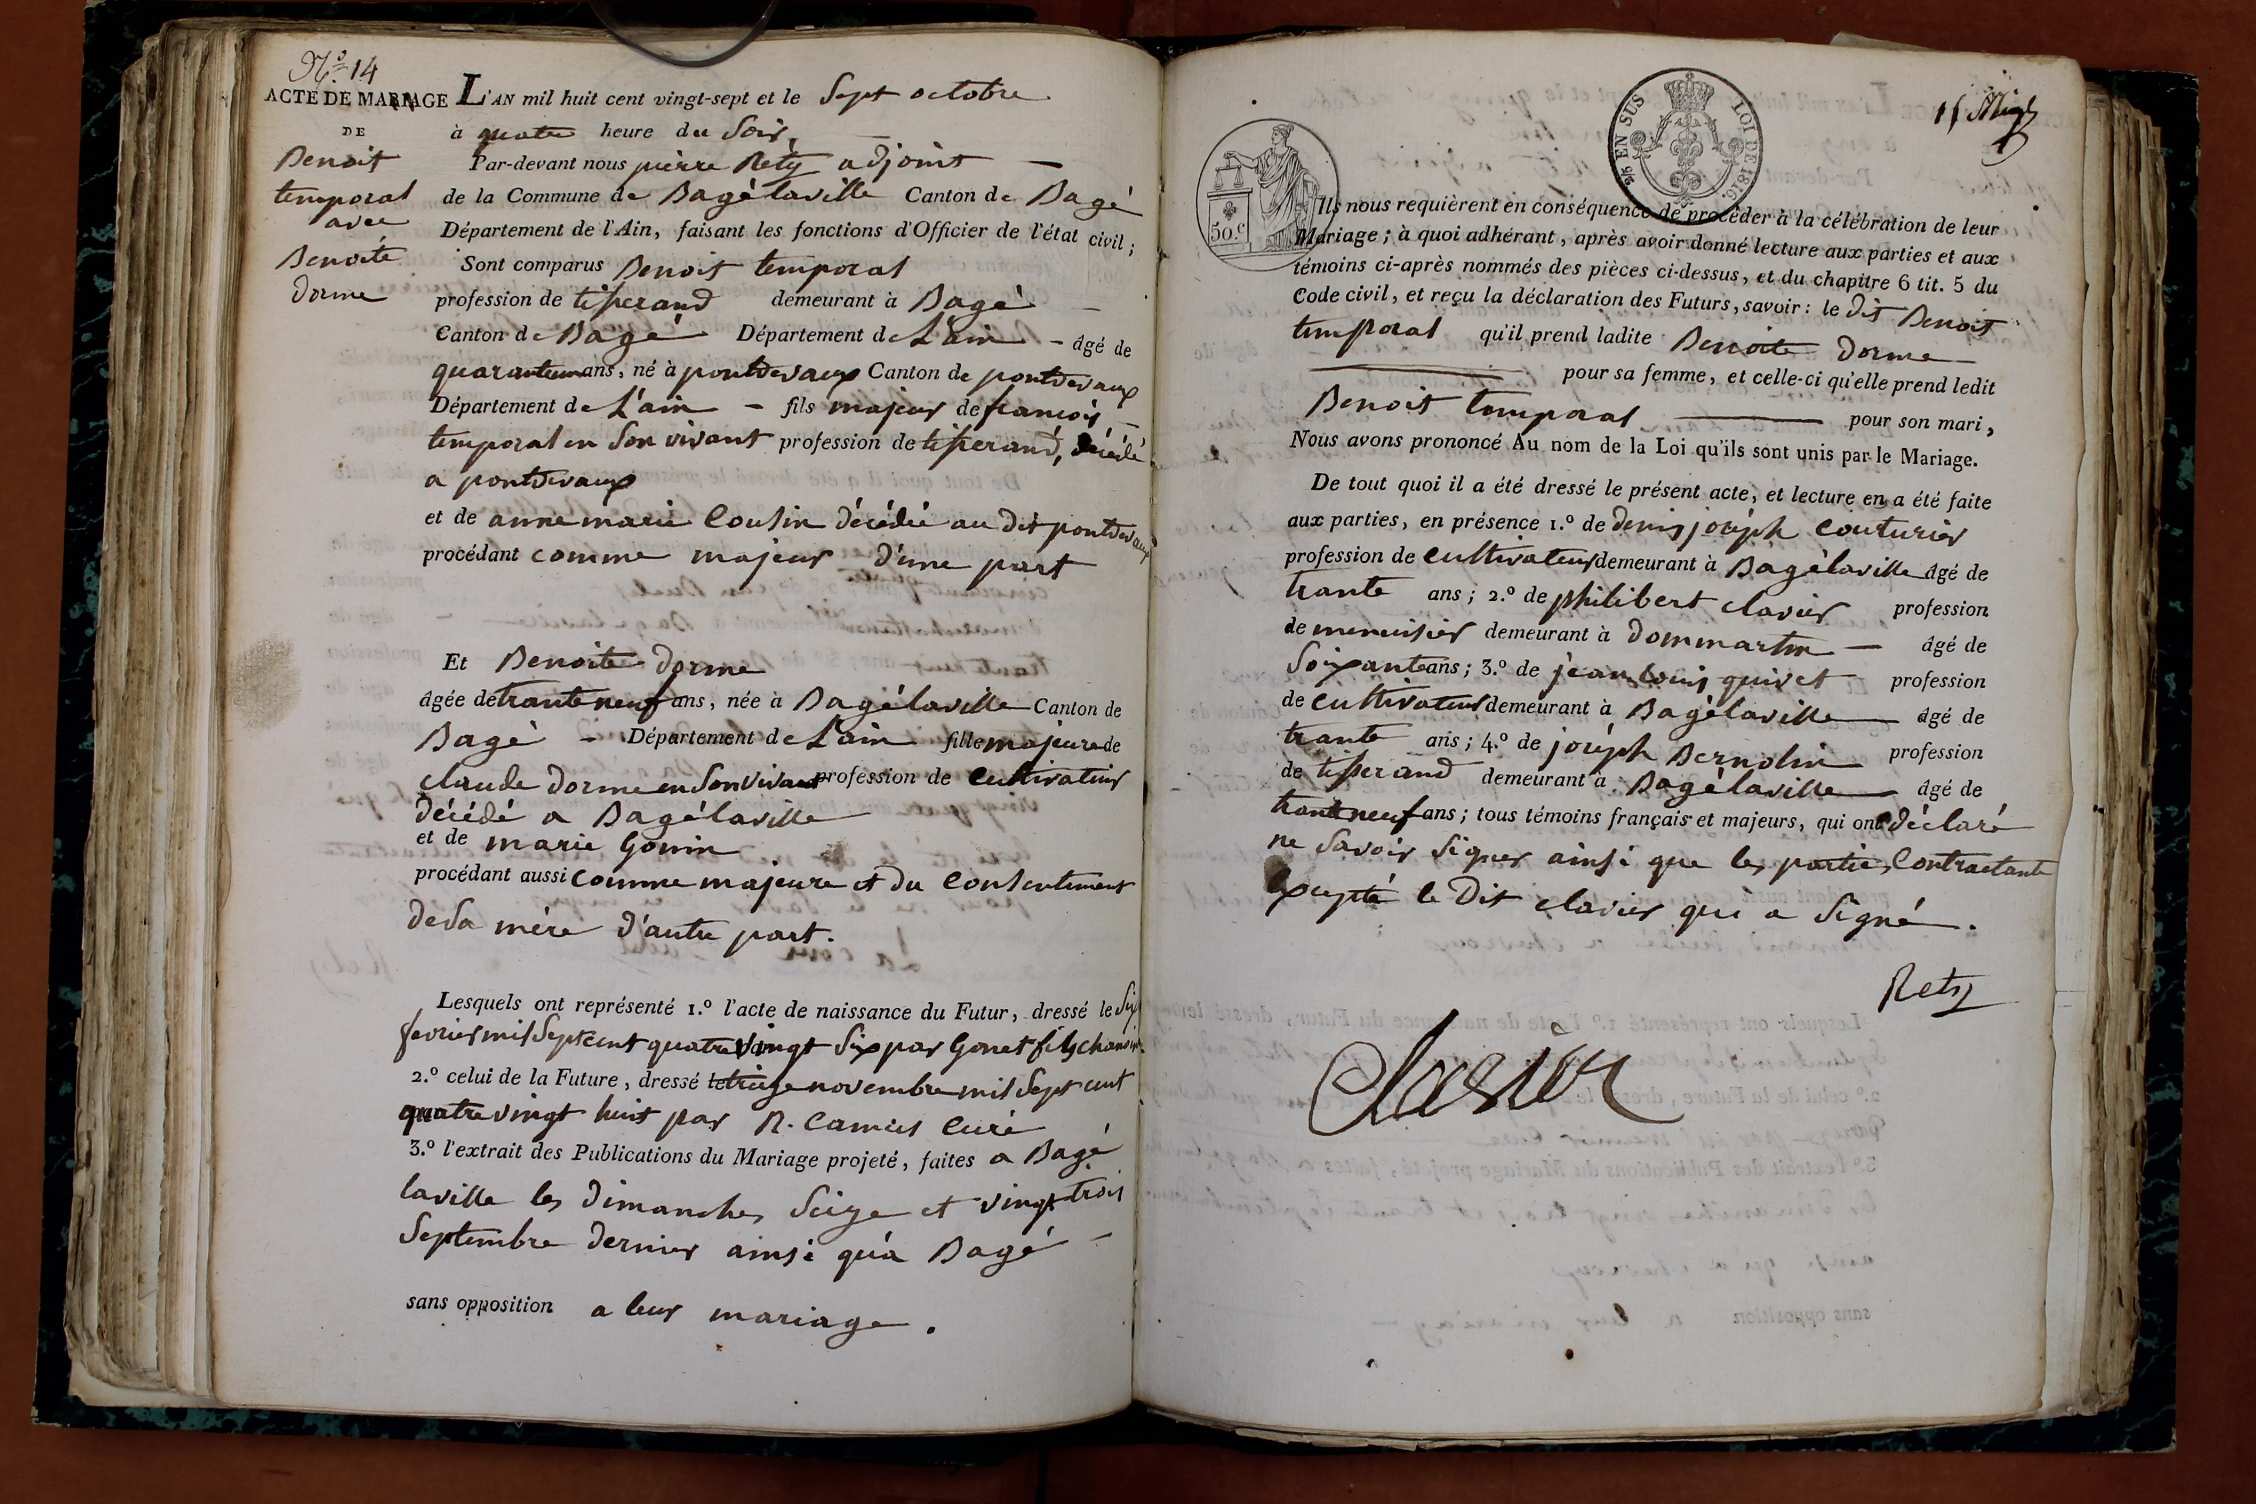 N.º 14
ACTE DE MARIAGE
DE
Benoit
temporal
avec
Benoite
dorme
L'AN mil huit cent vingt-sept et le Sept octobre
à quatre heure du Soir,
Par-devant nous pierre Rety adjoint
de la Commune de Bagélaville Canton de Bagé
Département de l'Ain, faisant les fonctions d'Officier de l'état civil;
Sont comparus Benoit temporal
profession de tisserand demeurant à Bagé
Canton de Bagé Département de L'ain - âgé de
quaranteun ans, né à pontdevaux Canton de pontdevaux
Département de L'ain - fils majeur de francois
temporal en Son vivant profession de tisserand, décédé
a pontdevaux
et de anne marie Cousin décédée au dit pontdevaux
procédant comme majeur d'une part
Et Benoite dorme
âgée de trante neuf ans, née à Bagélaville Canton de
Bagé - Département de L'ain fille majeure de
claude dorme en Son vivant profession de Cultivateur
décédé a Bagélaville
et de marie Gonin
procédant aussi comme majeure et du Consentement
de Sa mére d'autre part.
Lesquels ont représenté 1.º l'acte de naissance du Futur, dressé le Six
fevrier mil Sept cent quatre vingt Six par Gonet fils
2.º celui de la Future, dressé le treize novembre mil Sept cent
quatre vingt huit par R. Camus Curé
3.º l'extrait des Publications du Mariage projeté, faites a Bagé
laville les dimanches Seize et vingt trois
Septembre dernier ainsi qu'a Bagé -
sans opposition a leur mariage.
EN SUS LOI DE 1816.
50.c
Ils nous requièrent en conséquence de procéder à la célébration de leur
Mariage; à quoi adhérant, après avoir donné lecture aux parties et aux
témoins ci-après nommés des pièces ci-dessus, et du chapitre 6 tit. 5 du
Code civil, et reçu la déclaration des Futurs, savoir: le dit Benoit
temporal qu'il prend ladite Benoite dorme
pour sa femme, et celle-ci qu'elle prend ledit
Benoit temporal pour son mari,
Nous avons prononcé Au nom de la Loi qu'ils sont unis par le Mariage.
De tout quoi il a été dressé le présent acte, et lecture en a été faite
aux parties, en présence 1.º de denis joséph couturier
profession de Cultivateur demeurant à Bagélaville âgé de
trante ans; 2.º de philibert clavier profession
de menuisier demeurant à dommartin - âgé de
Soixante ans; 3.º de jean Louis quivet profession
de Cultivateur demeurant à Bagélaville âgé de
trante ans; 4.º de joséph Bernolin profession
de tisserand demeurant à Bagélaville âgé de
trante neuf ans; tous témoins français et majeurs, qui ont déclaré
ne Savoir Signer ainsi que les parties Contractante
Excepté le Dit clavier qui a Signé.
Rety
Clavier